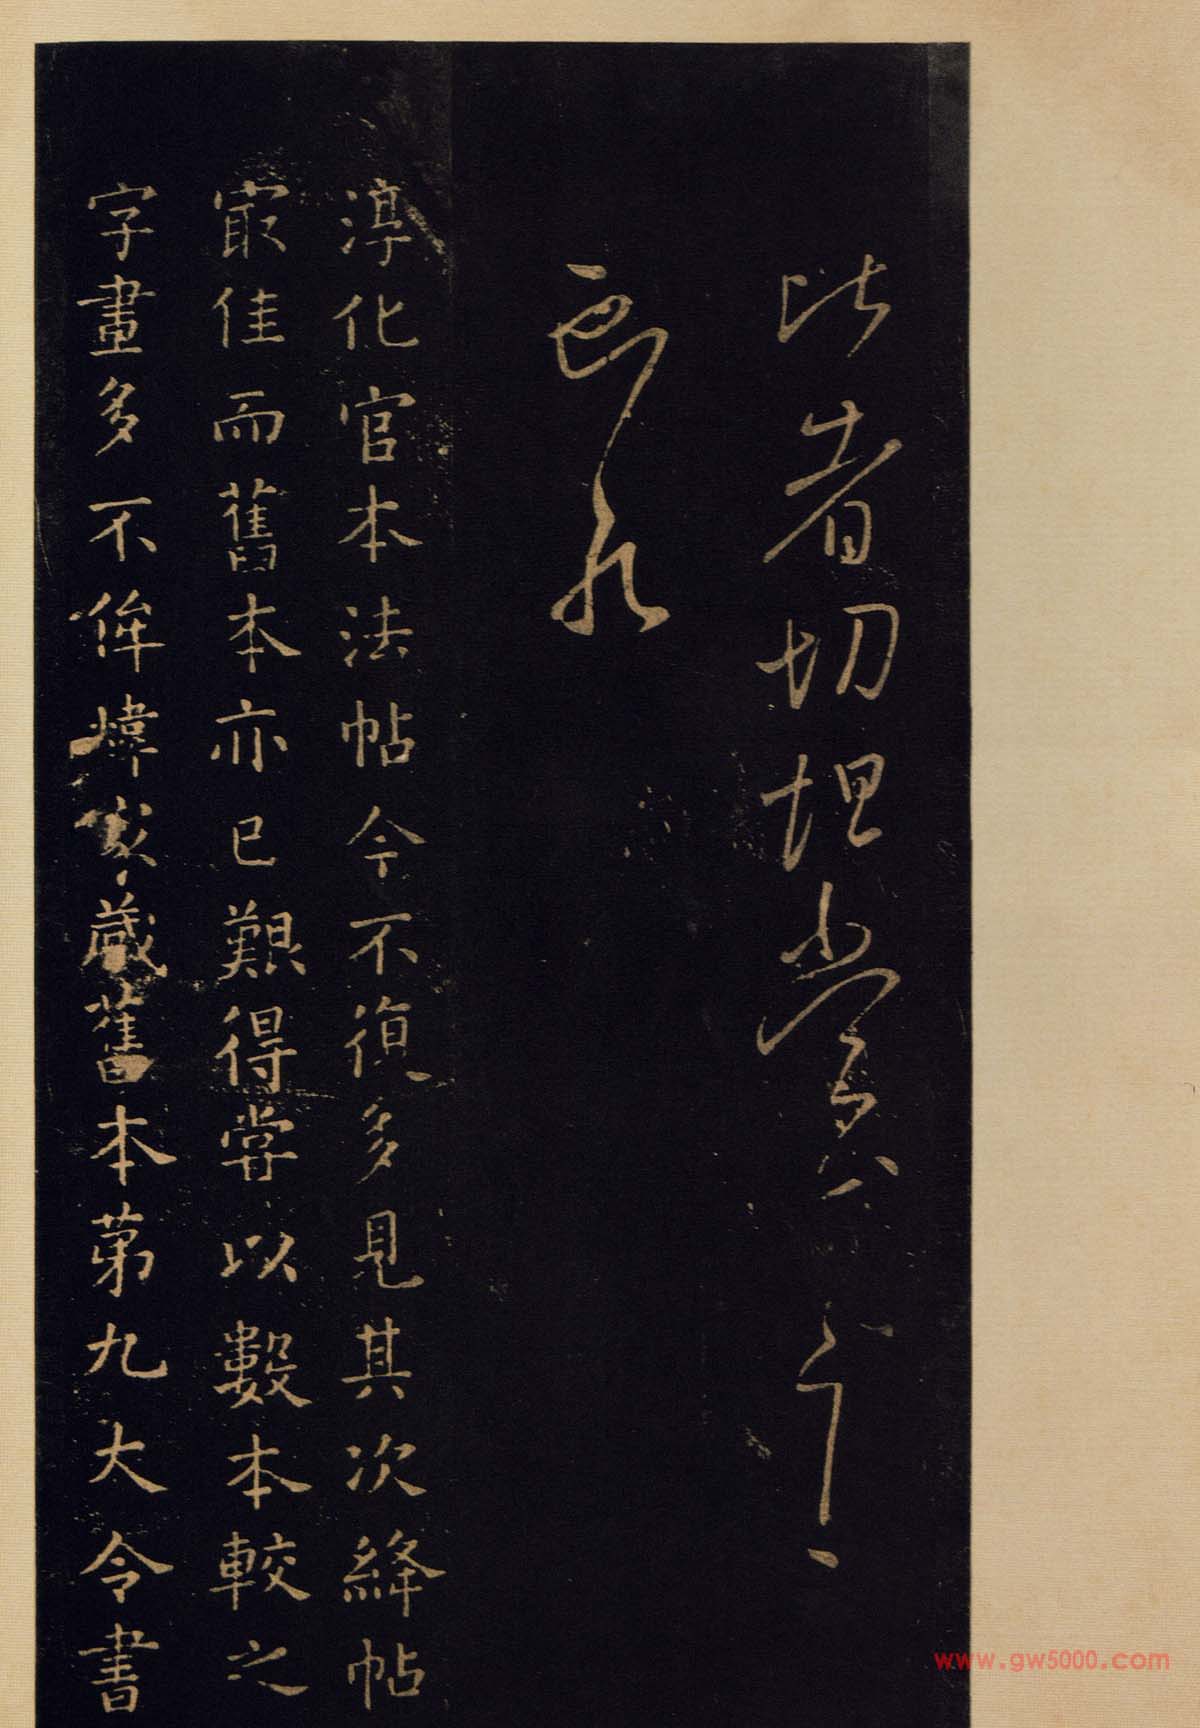 比者切
淳化官本法帖今不復多見其次絳帖
㝡佳而舊本亦已艱得嘗以數本較之
字畫多不侔煒家藏舊本第九大令書
www.gw5000.com